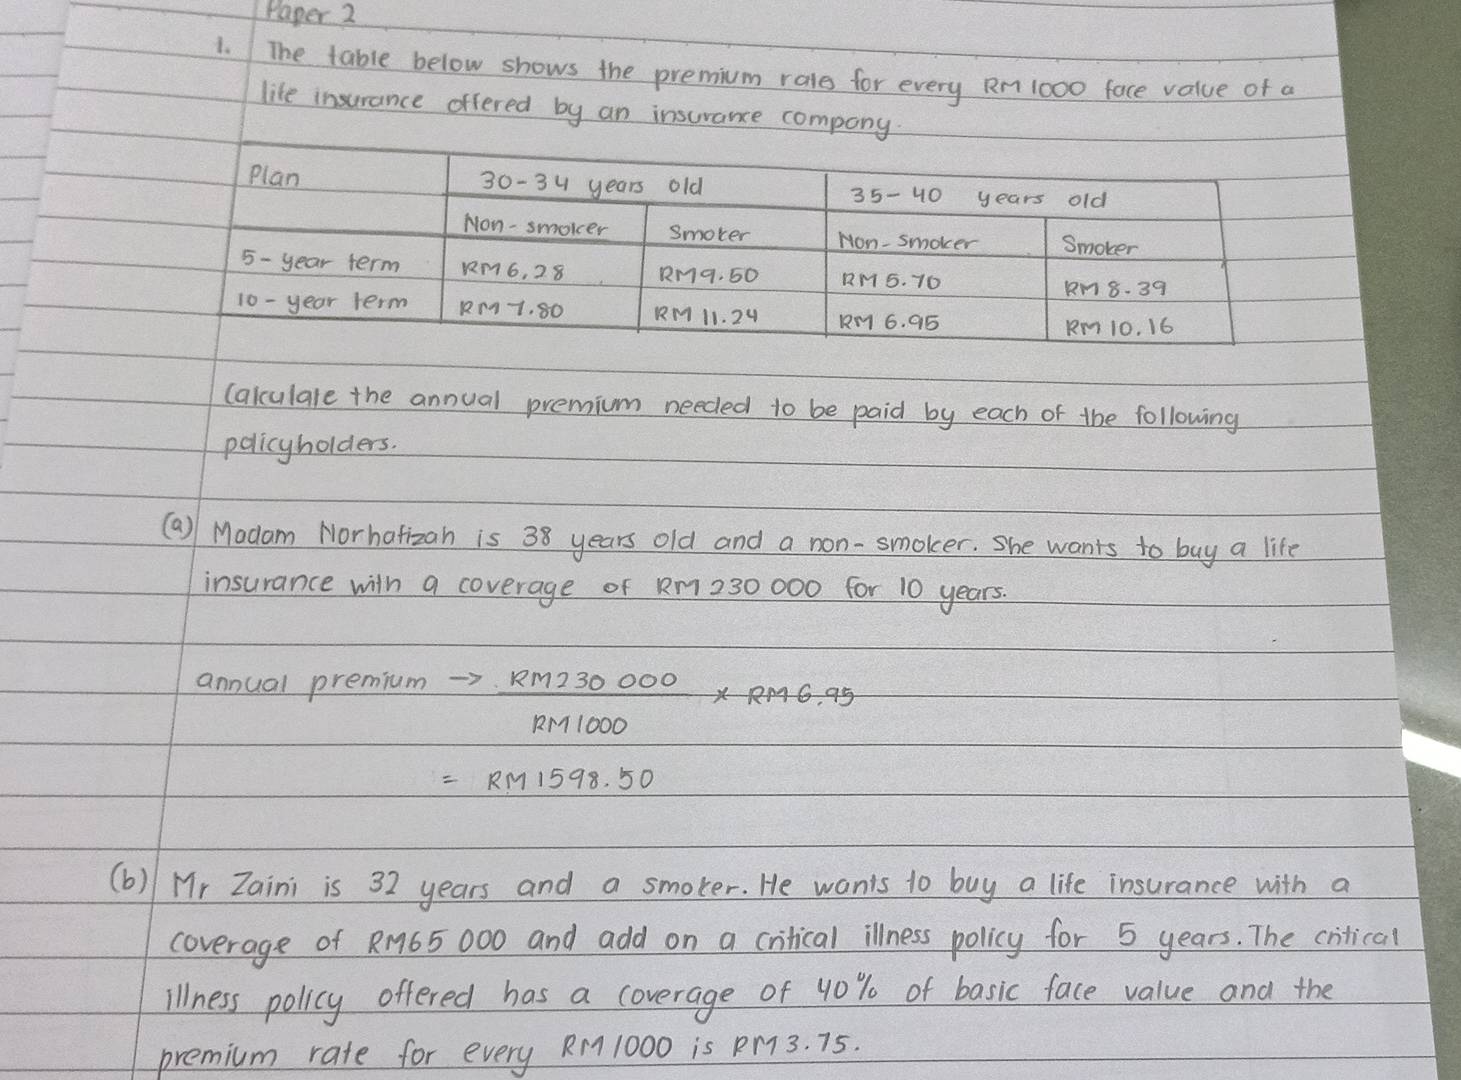 Paper 2
1. The table below shows the premium rates for every RM 1000 face value of a
life insurance offered by an insurance company.
Plan 30-34 years old 35-40 years old
Non-smoker Smoker Non-smoker Smoker
5-year term RM6.28 RM9.50 RM 5.70 RM 8.39
10-year term RM 7.80 RM 11.24 RM 6.95 RM 10.16
Calculate the annual premium needed to be paid by each of the following
policyholders.
(a) Madam Norhafizah is 38 years old and a non-smoker. She wants to buy a life
insurance with a coverage of RM 230 000 for 10 years.
annual premium → RM230 000 × RM6.95
RM1000
= RM1598.50
(b) Mr Zaini is 32 years and a smoker. He wants to buy a life insurance with a
coverage of RM65 000 and add on a critical illness policy for 5 years. The critical
illness policy offered has a coverage of 40% of basic face value and the
premium rate for every RM1000 is RM3.75.